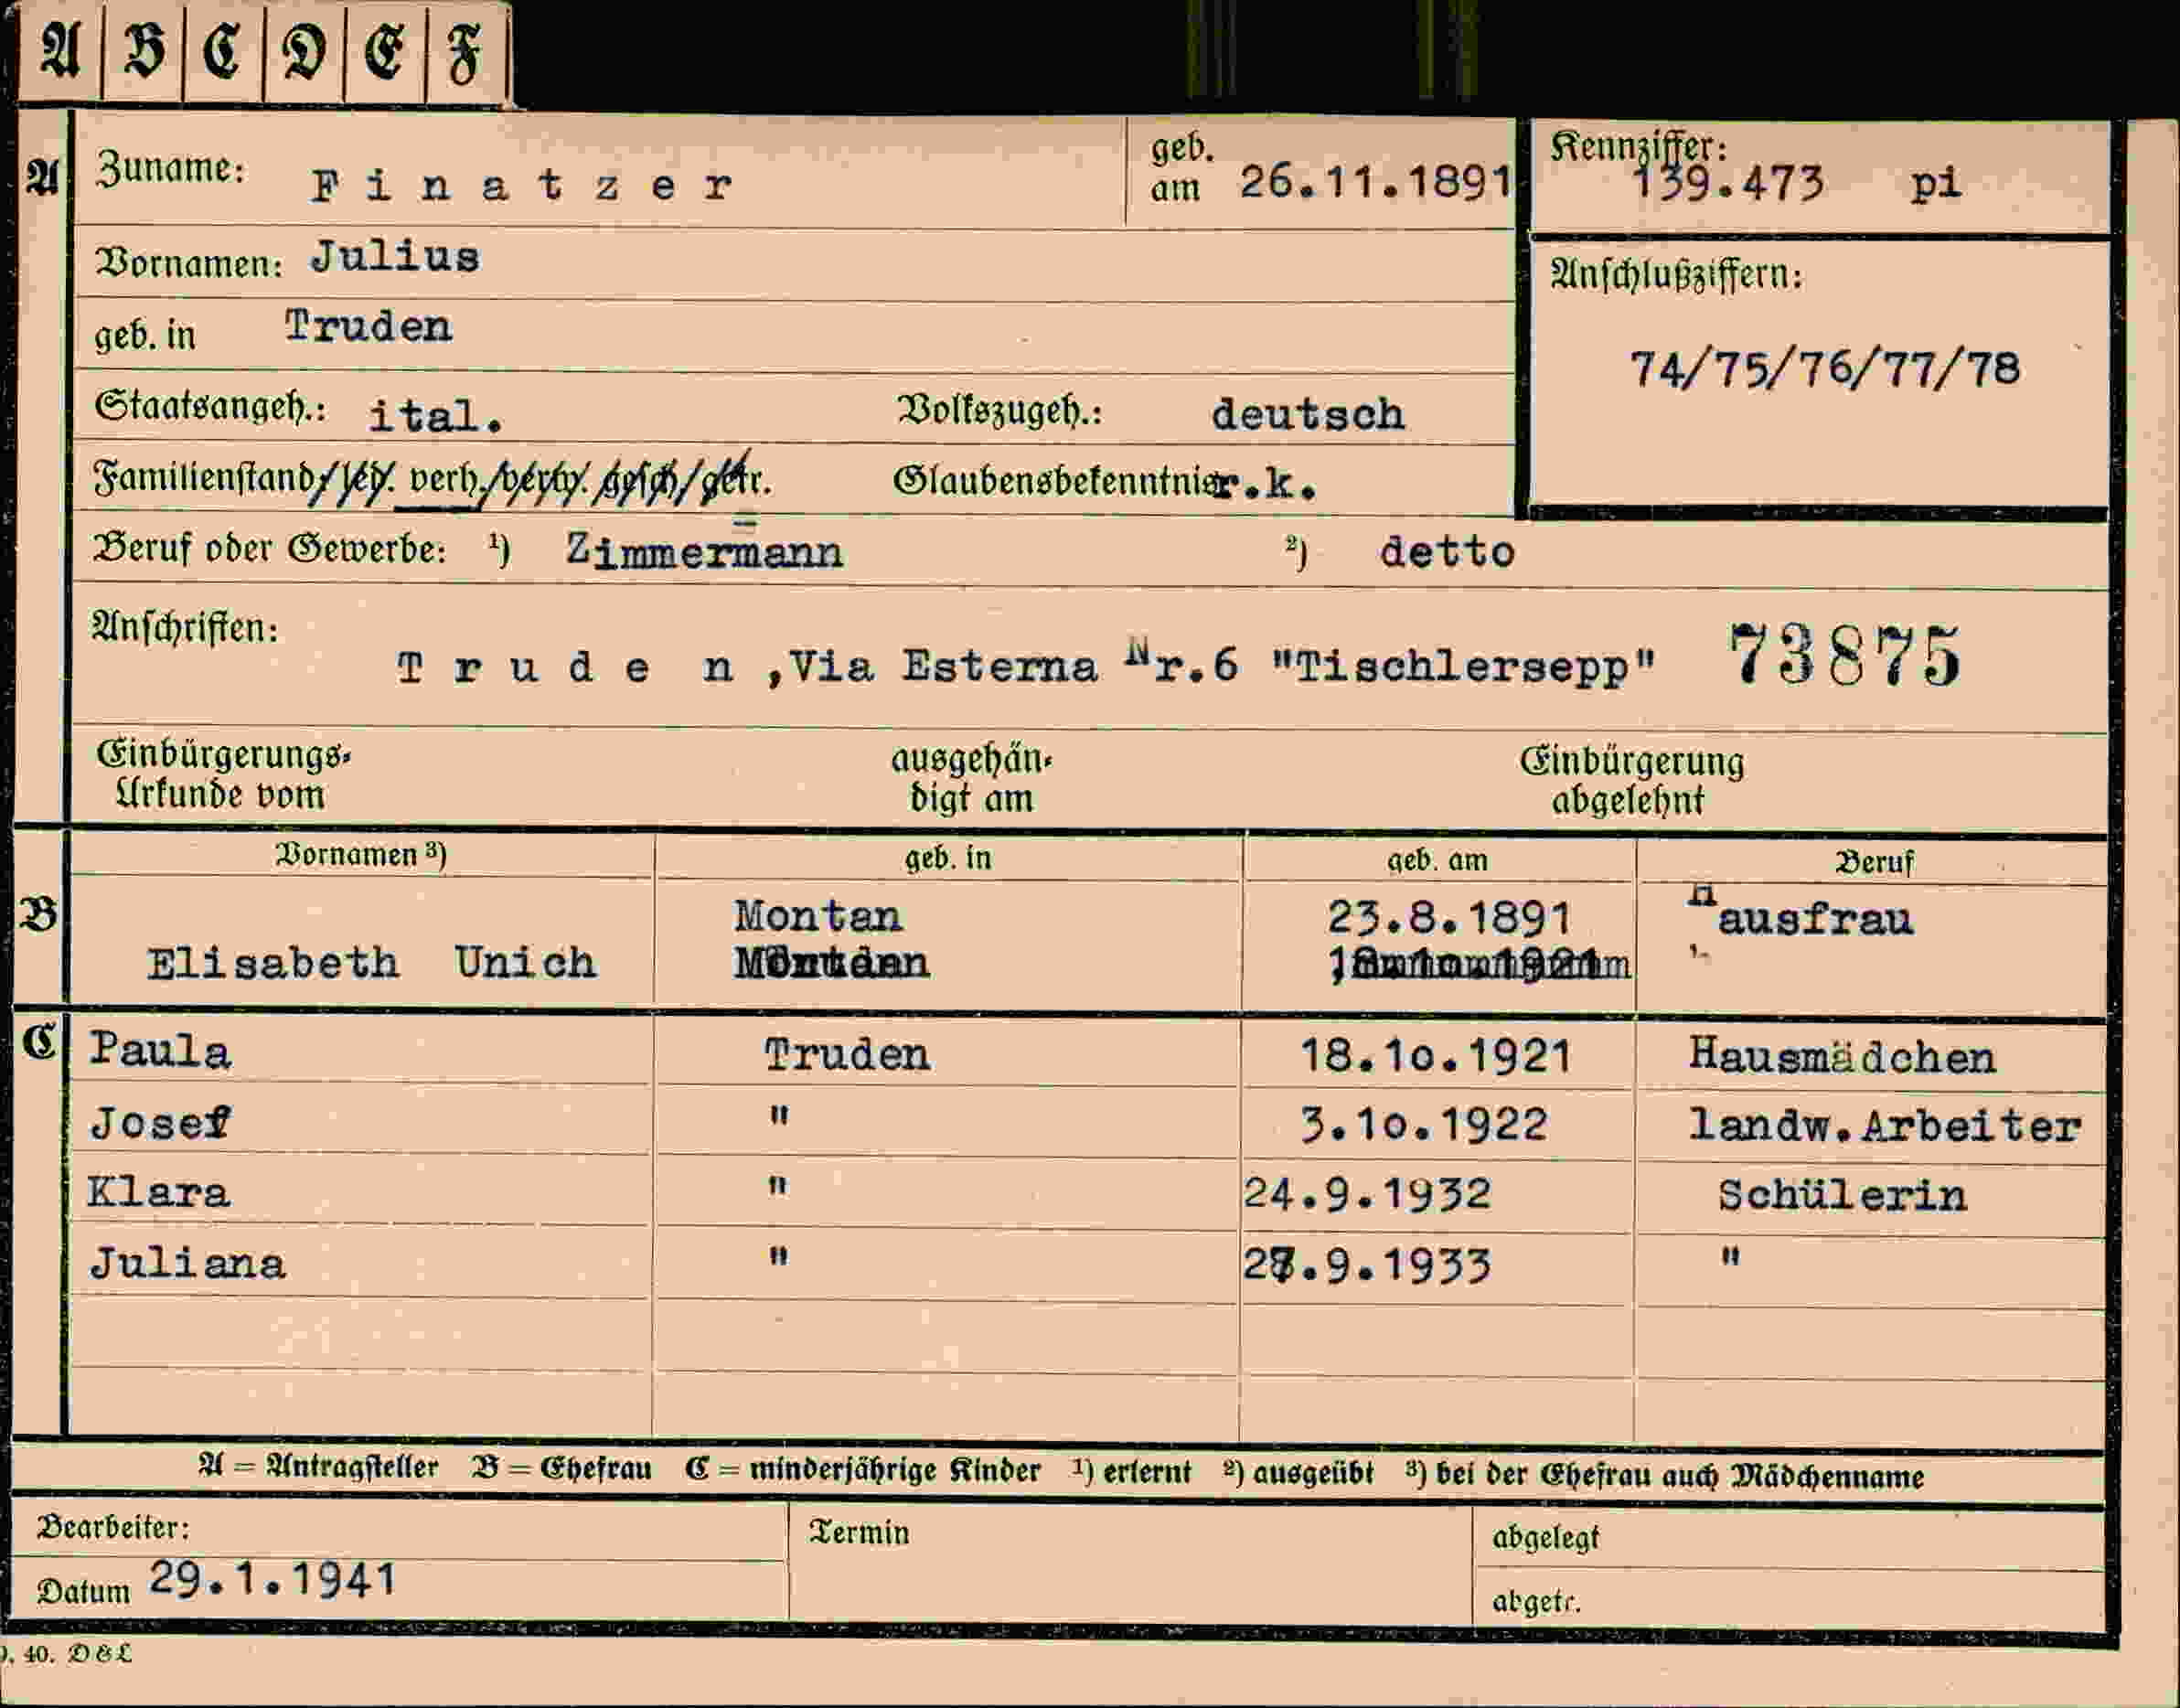 A B C D E F
A Zuname: Finatzer geb. am 26.11.1891 Kennziffer: 139.473 pi
Vornamen: Julius
Anschlußziffern:
geb. in Truden
74/75/76/77/78
Staatsangeh.: ital. Volkszugeh.: deutsch
Familienstand/led. verh./verw. gesch/getr. Glaubensbekenntnis r.k.
Beruf oder Gewerbe: 1) Zimmermann 2) detto
Anschriften:
Truden,Via Esterna Nr.6 "Tischlersepp" 73875
Einbürgerungs- ausgehän- Einbürgerung
Urkunde vom digt am abgelehnt
Vornamen 3) geb. in geb. am Beruf
B Montan 23.8.1891 Hausfrau
Elisabeth Unich
C Paula Truden 18.10.1921 Hausmädchen
Josef " 3.10.1922 landw.Arbeiter
Klara " 24.9.1932 Schülerin
Juliana " .9.1933 "
A = Antragsteller B = Ehefrau C = minderjährige Kinder 1) erlernt 2) ausgeübt 3) bei der Ehefrau auch Mädchenname
Bearbeiter: Termin abgelegt
Datum 29.1.1941 abgetr.
40. D&L